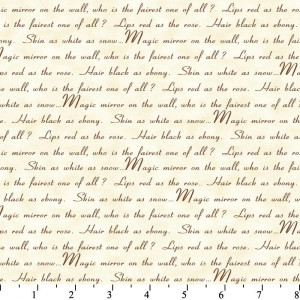 ic mirror on the wall, who is the fairest one of all ? Lips red as the rose.
black as ebony. Skin as white as snow...Magic mirror on the wall, who is the
fairest one of all ? Lips red as the rose. Hair black as ebony. Skin as
white as snow...Magic mirror on the wall, who is the fairest one of all ? Lips
ps red as the rose. Hair black as ebony. Skin as white as snow...M
he wall, who is the fairest one of all ? Lips red as the rose. Hair black as
white as snow...Magic mirror on the wall, who is the fairest one of all ?
se. Hair black as ebony. Skin as white as snow...Magic mirror on the
of all ? Lips red as the rose. Hair black as ebony. Skin as white as
ic mirror on the wall, who is the fairest one of all ? Lips red as the rose.
ebony. Skin as white as snow...Magic mirror on the wall, who is the
is the fairest one of all ? Lips red as the rose. Hair black as ebony.
black as ebony. Skin as white as snow...Magic mirror on the wall, who
Magic mirror on the wall, who is the fairest one of all ? Lips red as
d as the rose. Hair black as ebony. Skin as white as snow...Magic
wall, who is the fairest one of all ? Lips red as the rose. Hair black
e as snow...Magic mirror on the wall, who is the fairest one of all ?
Hair black as ebony. Skin as white as snow...Magic mirror on the
1 2 3 4 5 6 7 8